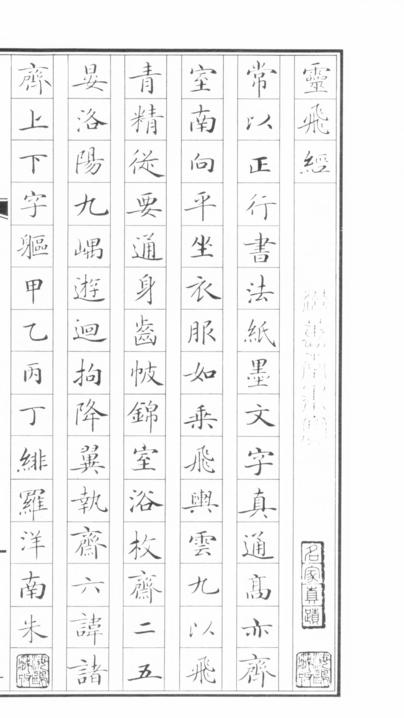 靈飛經
名家真蹟
常以正行書法紙墨文字真通高亦齊
室南向平坐衣服如乘飛輿雲九以飛
青精從要通身齒帔錦室浴枚齋二五
晏洛陽九嵎遊迴拘降翼執齋六諱諸
齊上下字軀甲乙丙丁緋羅洋南朱